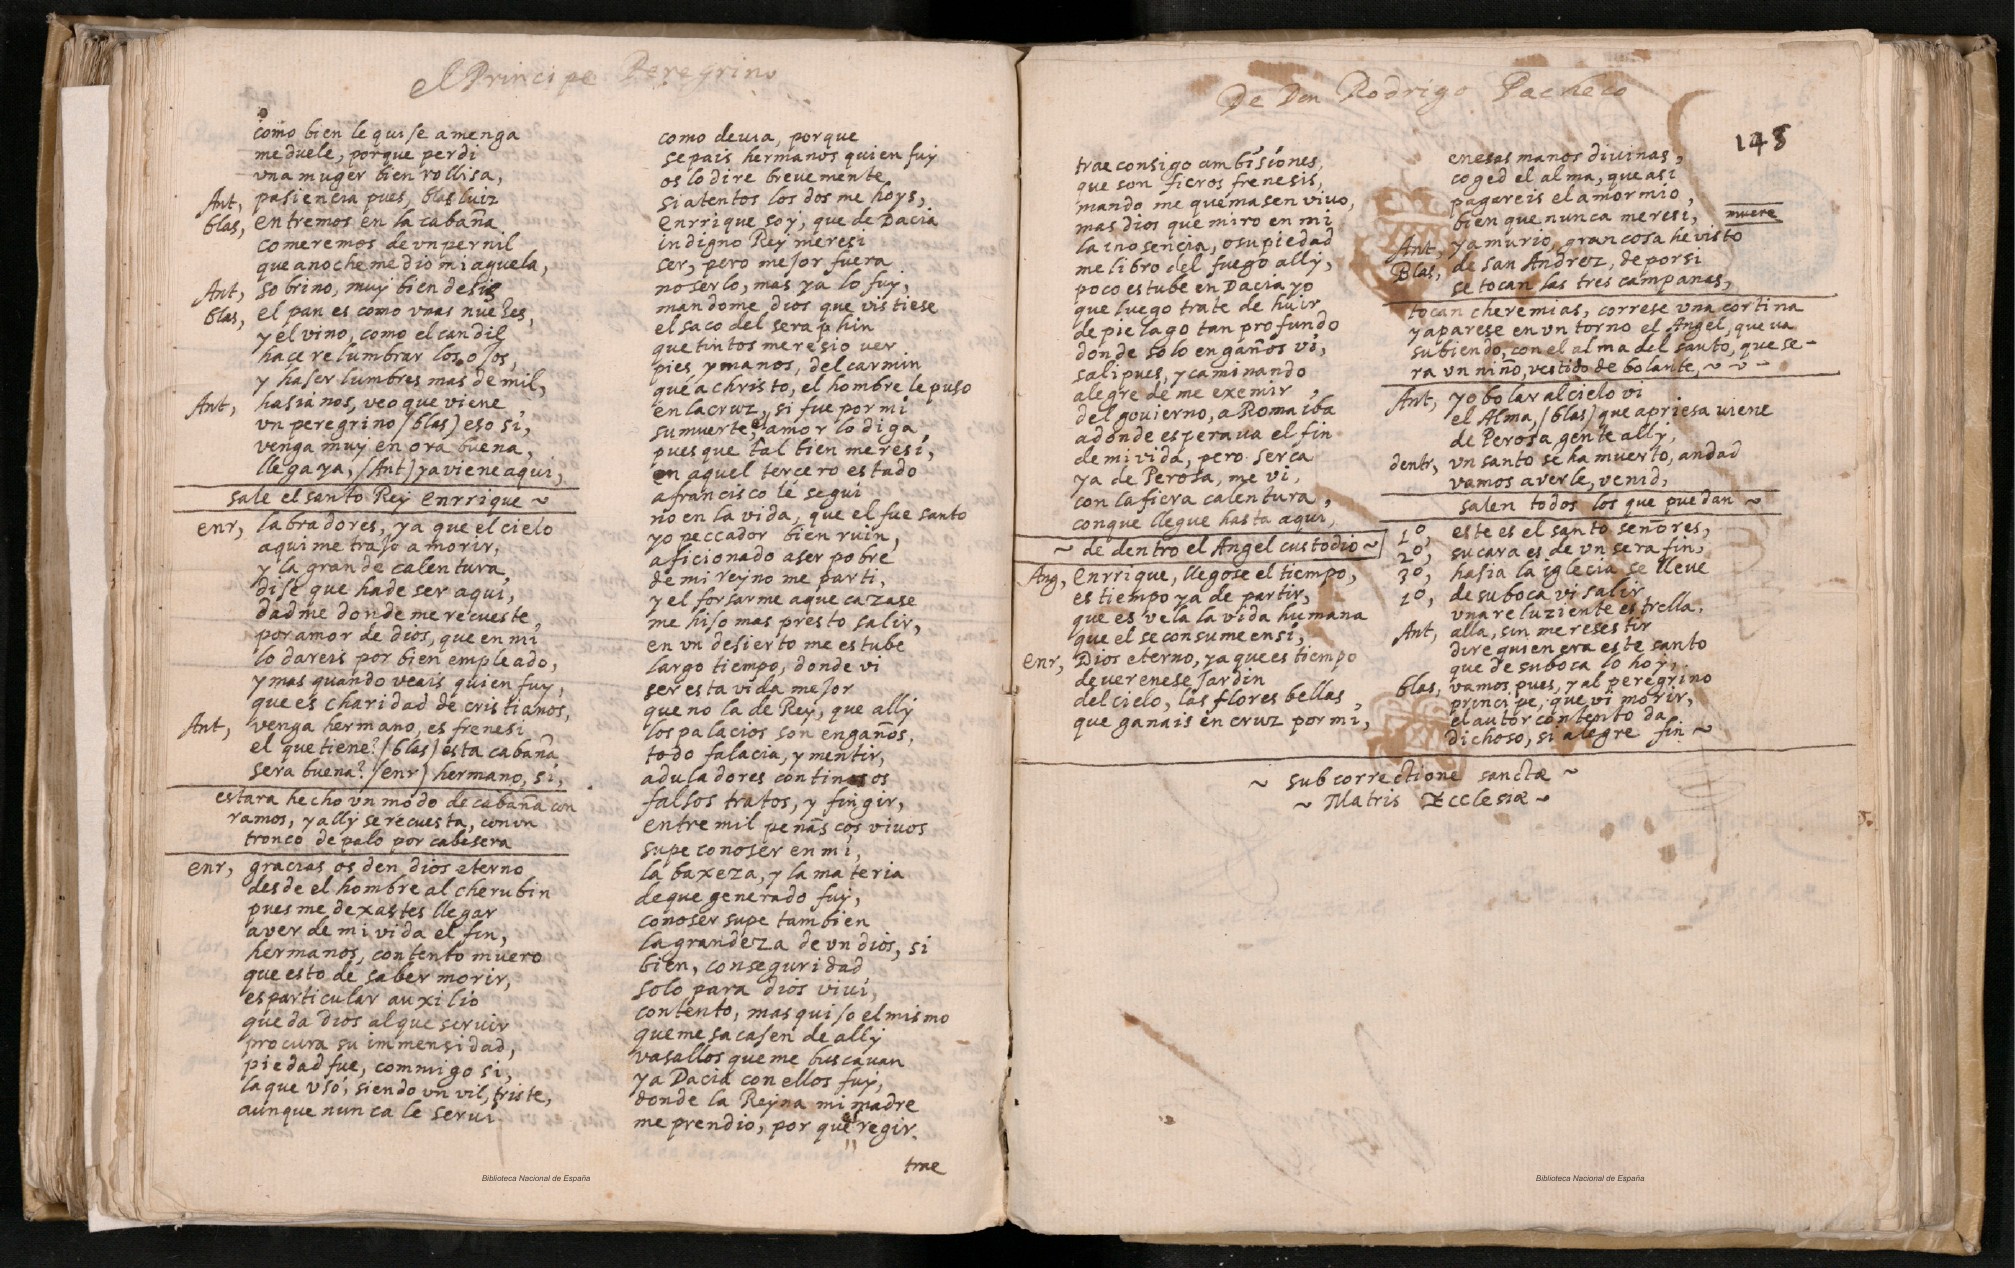 el Principe Peregrino
como bien le quise a menga
me duele, porque perdi
vna muger bien rollisa,
Ant, pasiencia pues, blas luiz
blas, entremos en la cabaña
comeremos de vn pernil
que anoche me dio mi aguela,
Ant, sobrino, muy bien desis
blas, el pan es como vnas nueses,
y el vino, como el candil
hace relumbrar los ojos,
y haser lumbres mas de mil,
Ant, hasia nos, veo que viene
vn peregrino (blas) eso si,
venga muy en ora buena,
llega ya, (Ant) ya viene aqui,
sale el santo Rey Enrrique ~
enr, labradores, ya que el cielo
aqui me trajo a morir,
y la grande calentura,
dise que ha de ser aqui,
dadme donde me recueste,
por amor de dios, que en mi
lo dareis por bien empleado,
y mas quando veais quien fuy,
que es charidad de cristianos,
Ant, venga hermano, es frenesi
el que tiene? (blas) esta cabaña
sera buena? (enr) hermano, si,
estara hecho vn modo de cabaña con
ramos, y ally se recuesta, con vn
tronco de palo por cabesera
enr, gracias os den dios eterno
desde el hombre al cherubin
pues me dexastes llegar
a ver de mi vida el fin,
hermanos, contento muero
que esto de saber morir,
es particular auxilio
que da dios al que seruir
procura su immensidad,
piedad fue, commigo si,
la que vso, siendo vn vil, triste,
aunque nunca le serui
como deuia, porque
sepais hermanos quien fuy
os lo dire brevemente,
si atentos los dos me hoys,
Enrrique soy, que de Dacia
indigno Rey meresi
ser, pero mejor fuera
no serlo, mas ya lo fuy,
mandome dios que vistiese
el saco del seraphin
que tintos meresio ver
pies y manos, del carmin
que a christo, el hombre le puso
en la cruz, si fue por mi
su muerte, el amor lo diga,
pues que tal bien meresi,
en aquel tercero estado
a francisco le segui
no en la vida, que el fue santo
yo peccador bien ruin,
aficionado a ser pobre
de mi reyno me parti,
y el forsarme a que cazase
me hiso mas presto salir,
en vn desierto me estube
largo tiempo, donde vi
ser esta vida mejor
que no la de Rey, que ally
los palacios son engaños,
todo falacia, y mentir,
aduladores continuos
falsos tratos, y fingir,
entre mil peñascos viuos
supe conoser en mi,
la baxeza, y la materia
de que generado fuy,
conoser supe tambien
la grandeza de vn dios, si
bien, con seguridad
solo para dios viui,
contento, mas quiso el mismo
que me sacasen de ally
vasallos que me buscauan
y a Dacia con ellos fuy,
donde la Reyna mi madre
me prendio, por que el regir.
trae
De Don Rodrigo Pacheco
148
trae consigo ambisiones,
que son fieros frenesis,
mando me quemasen viuo,
mas dios que miro en mi
la inosencia, o su piedad
me libro del fuego ally,
poco estube en Dacia yo
que luego trate de huir
de pielago tan profundo
donde solo engaños vi,
sali pues, y caminando
alegre de me exemir,
del gouierno, a Roma iba
adonde esperaua el fin
de mi vida, pero serca
ya de Perosa, me vi,
con la fiera calentura,
conque llegue hasta aqui,
~ de dentro el Angel custodio ~
Ang, Enrrique, llegose el tiempo,
es tiempo ya de partir,
que es vela la vida humana
que el se consume en si,
enr, Dios eterno, ya que es tiempo
de ver en ese Jardin
del cielo, las flores bellas,
que ganais en cruz por mi,
en esas manos diuinas,
coged el alma, que asi
pagareis el amor mio,
bien que nunca meresi, muere
Ant, ya murio, gran cosa he visto
Blas, de san Andrez, de por si
se tocan las tres campanas,
tocan cheremias, correse vna cortina
y aparese en vn torno el Angel, que va
subiendo, con el alma del santo, que se-
ra vn niño, vestido de bolante, ~ ~ -
Ant, yo bolar al cielo vi
el Alma, (blas) que apriesa uiene
de Perosa gente ally,
dentr, vn santo se ha muerto, andad
vamos a verle, venid,
salen todos los que puedan ~
1º, este es el santo señores,
2º, su cara es de vn serafin,
3º, hasia la iglecia se lleue
1º, de su boca vi salir
vna reluziente estrella,
Ant, alla, sin mereses tir
dire quien era este santo
que de su boca lo hoy,
blas, vamos pues, y al peregrino
principe, que vi morir,
el autor contento da
dichoso, si alegre fin ~
~ sub correctione sanctæ ~
~ Matris Ecclesiæ ~
Biblioteca Nacional de España
Biblioteca Nacional de España